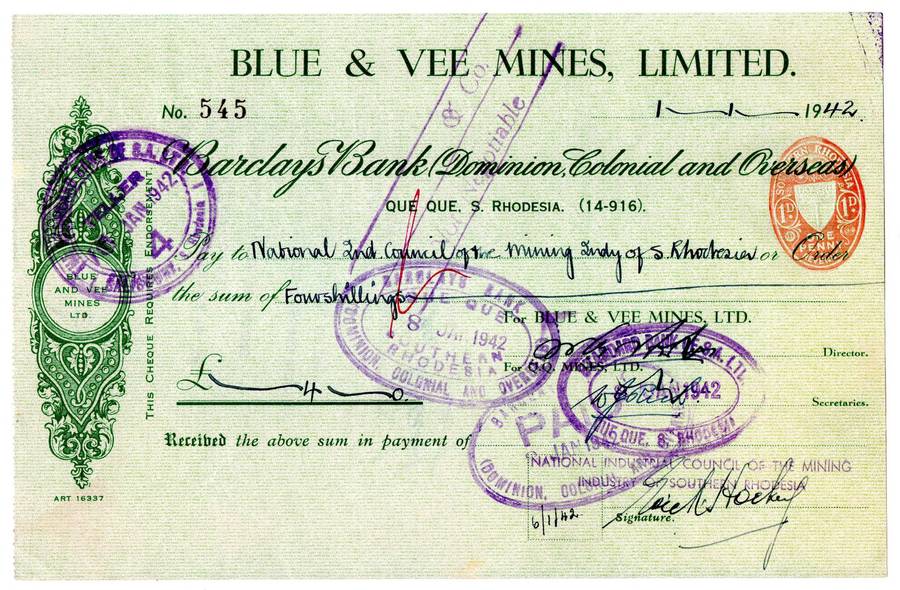 BLUE & VEE MINES, LIMITED.
No. 545
1 1 1942.
& Co.
Barclays Bank (Dominion, Colonial and Overseas)
QUE QUE, S. RHODESIA. (14-916).
SOUTHERN RHODESIA
1D 1D
ONE PENNY
TELLER
JAN 1942
4
Rhodesia
THIS CHEQUE REQUIRES ENDORSEMENT
BLUE
AND VEE
MINES
LTD
Pay to National Ind. Council of the Mining Indy of S. Rhodesia or Order
the sum of Four shillings
BARCLAYS BANK
QUE QUE
8 JAN 1942
SOUTHERN
RHODESIA
(DOMINION, COLONIAL AND OVERSEAS)
For BLUE & VEE MINES, LTD.
Director.
For Q.Q. MINES, LTD.
STANDARD BANK OF S.A. LTD.
1942
QUE QUE, S. RHODESIA
Secretaries.
£ 4 0
Received the above sum in payment of
PAID
JAN
(DOMINION, COLONIAL
NATIONAL INDUSTRIAL COUNCIL OF THE MINING
INDUSTRY OF SOUTHERN RHODESIA
6/1/42
Signature.
ART 16337